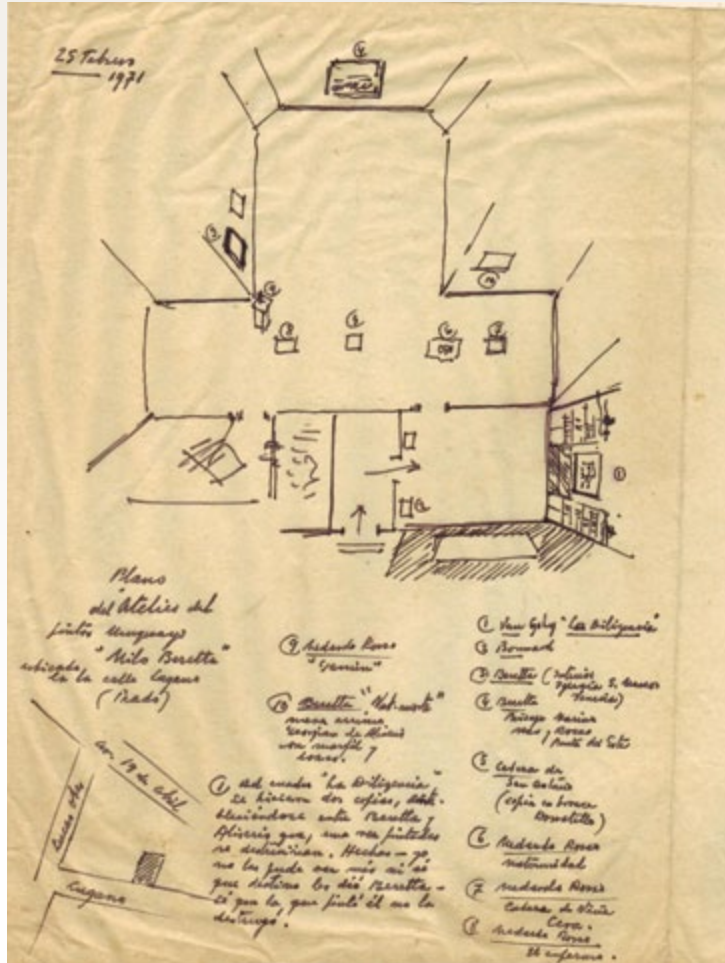 25 Febrero
1971
Plano
del Atelier del
pintor Uruguayo
"Milo Beretta"
ubicado
en la calle Lugano
(Prado)
Av. 19 de Abril
Lucas Obes
Lugano
⑨ Medardo Rosso
⑩ Beretta "Nat. muerta"
① del cuadro "La Diligencia"
se hicieron dos copias,
entre Beretta y
que, una vez pintadas
se destruirían. Hechas - yo
no las pude ver más ni sé
que destino les dió Beretta -
sé que la que pintó él no la
destruyó.
① Van Gogh "La Diligencia"
② Bonnard
③ Beretta (Interior
Iglesia S. Marcos
Venecia)
④ Beretta
Marina
y Rocas
Punta del Este
⑤ Cabeza de
San
(copia en bronce
Donatello)
⑥ Medardo Rosso
maternidad
⑦ Medardo Rosso
Cabeza de Niño
Cera.
⑧ Medardo Rosso
El enfermo.